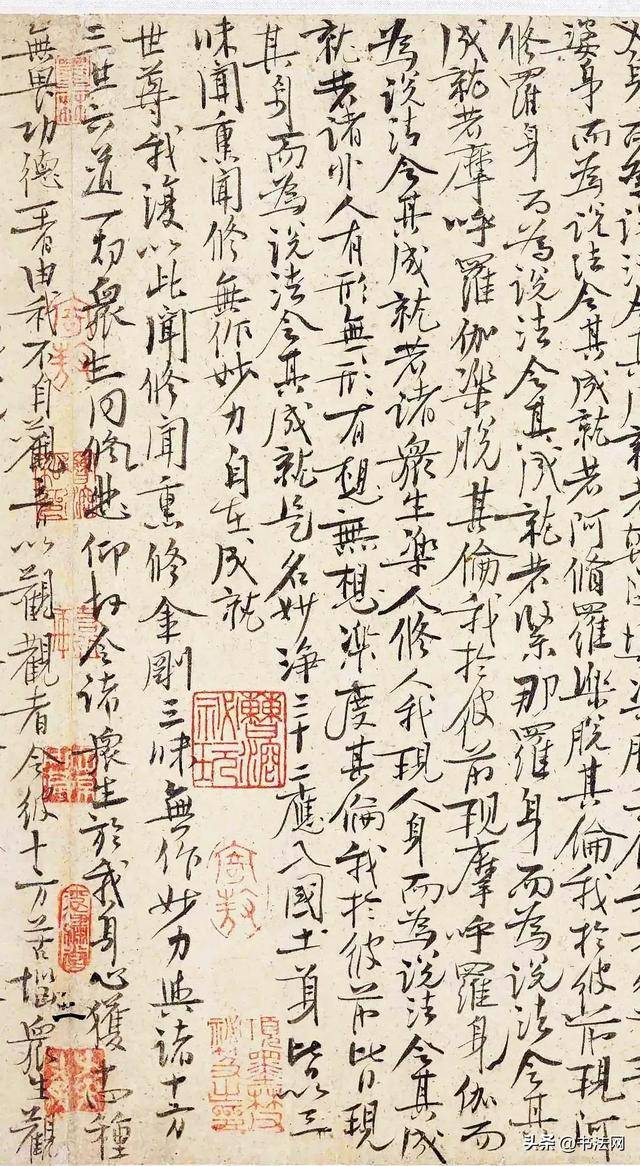 身而為說法令其成就若
婆身而為說法令其成就若阿脩羅樂脫其倫我於彼前現阿
修羅身而為說法令其成就若緊那羅身而為說法令其
成就若摩呼羅伽樂脫其倫我於彼前現摩呼羅身伽而
為說法令其成就若諸衆生樂人修人我現人身而為說法令其成
就若諸非人有形無形有想無想樂度其倫我於彼前皆現
其身而為說法令其成就是名妙淨三十二應入國土身皆以三
昧聞熏聞修無作妙力自在成就
世尊我復以此聞修聞熏修金剛三昧無作妙力與諸十方
三世六道一切衆生同修悲仰故令諸衆生於我身心獲十四種
無畏功德一者由我不自觀音以觀觀者令彼十方苦惱衆生觀
曹溶祕玩
項墨林祕笈之印
头条 @书法网